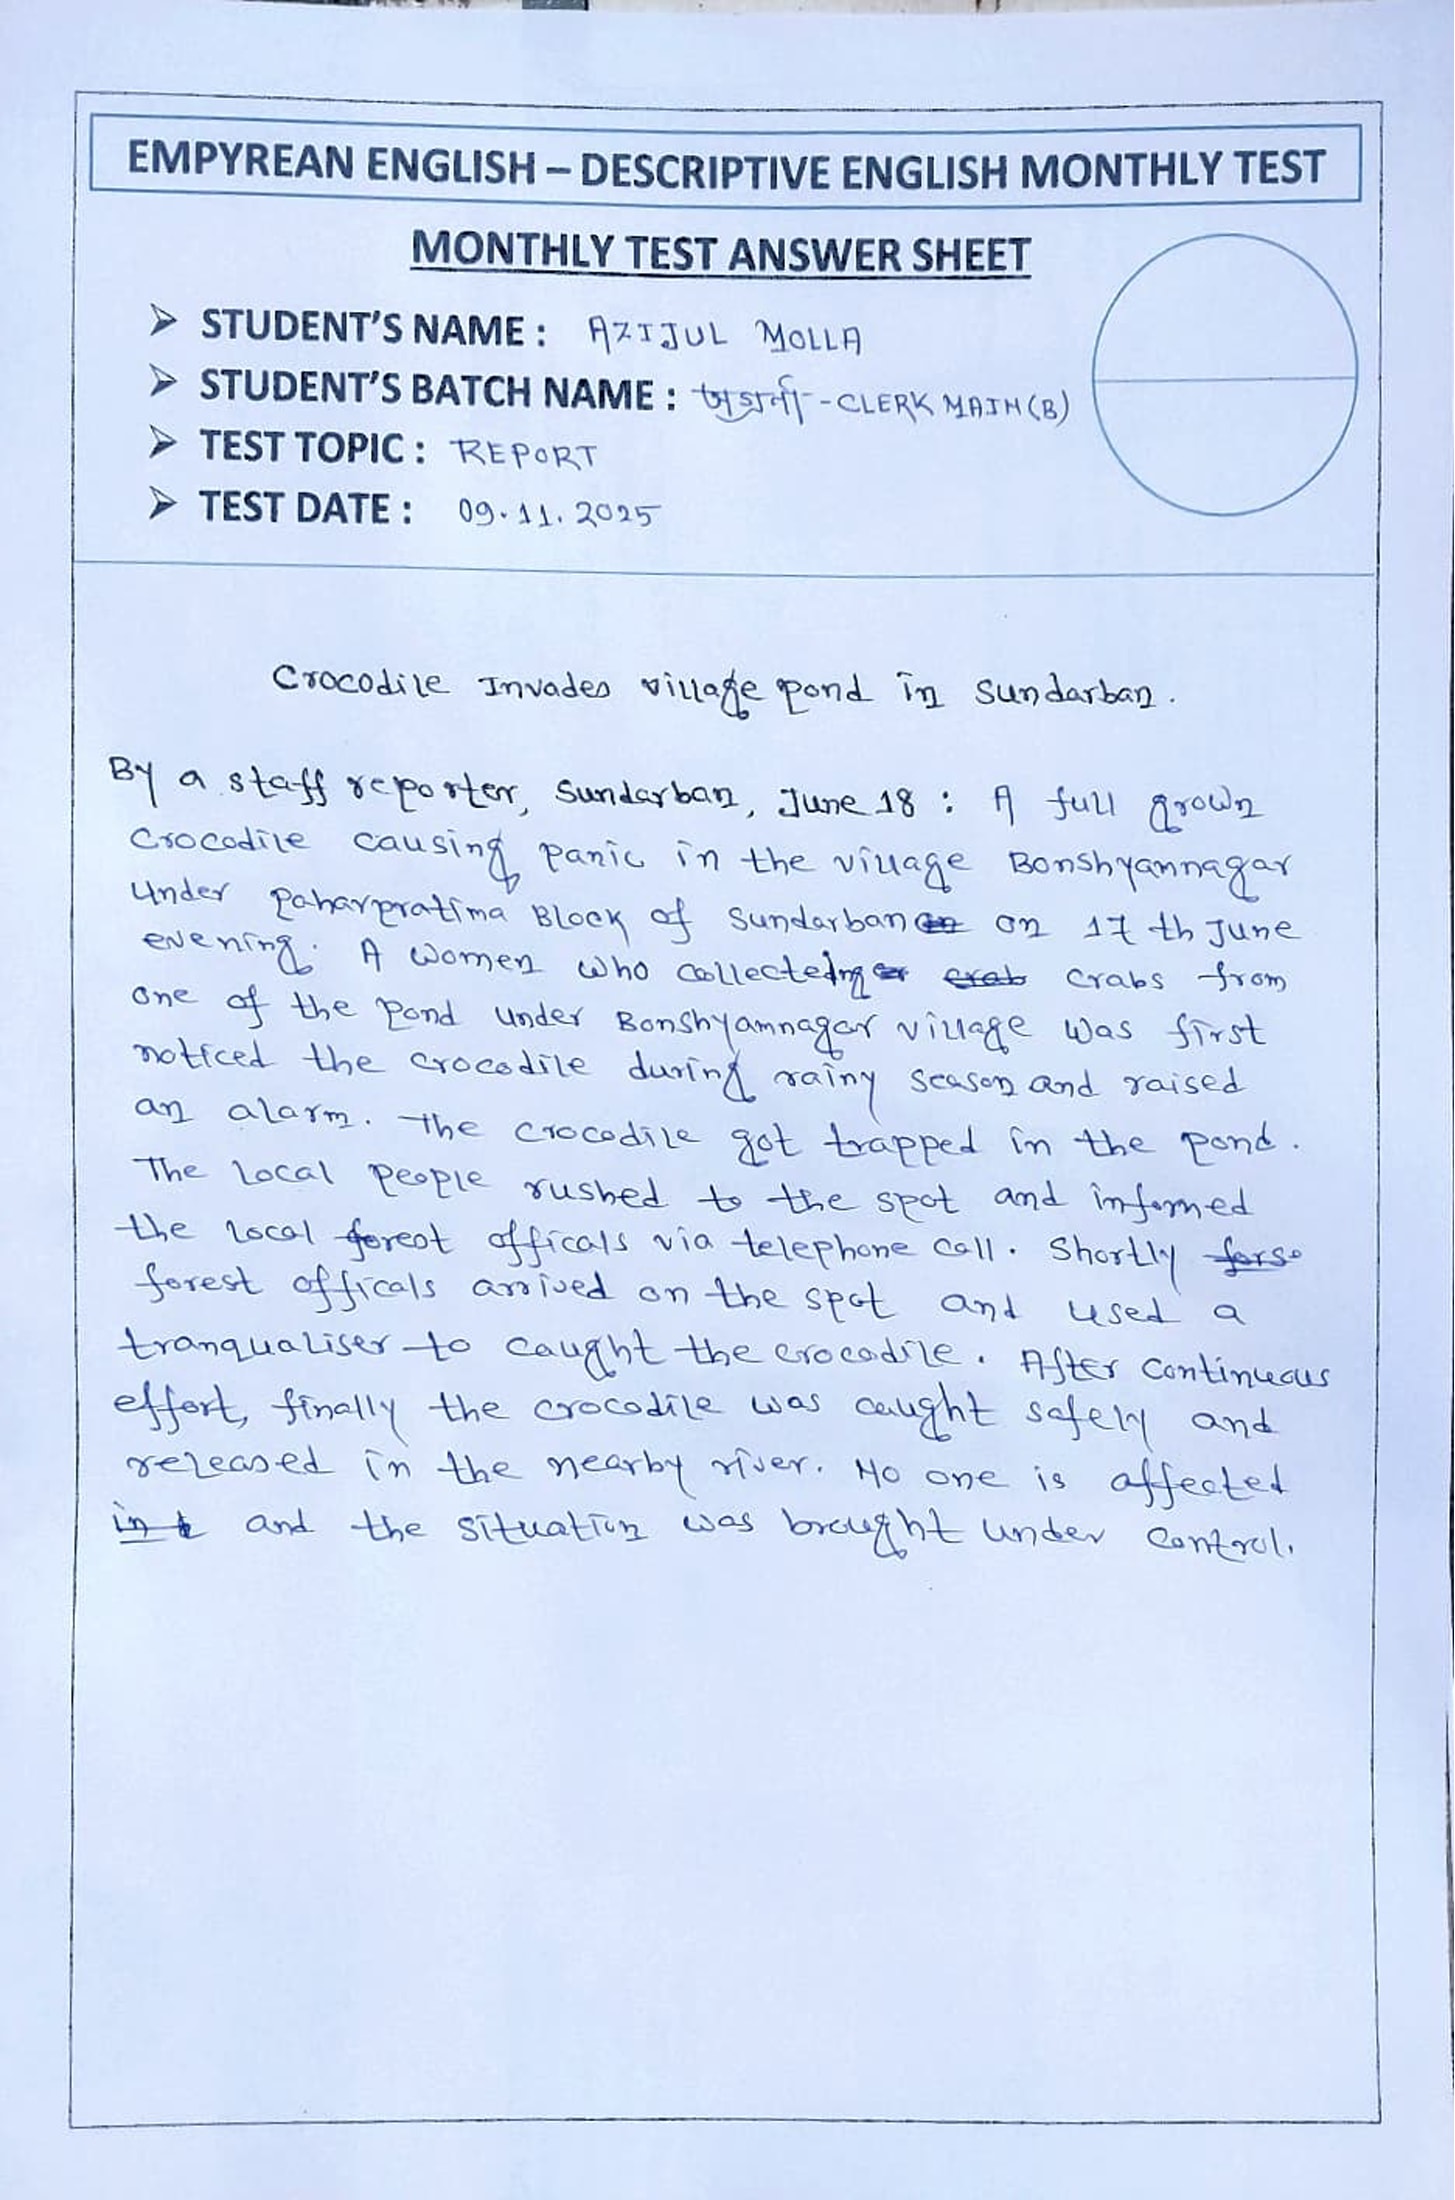 EMPYREAN ENGLISH – DESCRIPTIVE ENGLISH MONTHLY TEST
MONTHLY TEST ANSWER SHEET
➢ STUDENT'S NAME : AZIJUL MOLLA
➢ STUDENT'S BATCH NAME : অগ্রণী - CLERK MAIN (B)
➢ TEST TOPIC : REPORT
➢ TEST DATE : 09.11.2025
Crocodile Invades village pond in Sundarban.
By a staff reporter, Sundarban, June 18 : A full grown
Crocodile causing panic in the village Bonshyamnagar
Under Paharpratima Block of Sundarban on 17 th June
evening. A women who collecteing crab crabs from
one of the pond under Bonshyamnagar village was first
noticed the crocodile during rainy season and raised
an alarm. The crocodile got trapped in the pond.
The local people rushed to the spot and informed
the local forest officals via telephone call. Shortly forse
forest officals arrived on the spot and used a
tranqualiser to caught the crocodile. After continuous
effort, finally the crocodile was caught safely and
released in the nearby river. No one is affected
in t and the situation was brought under control.